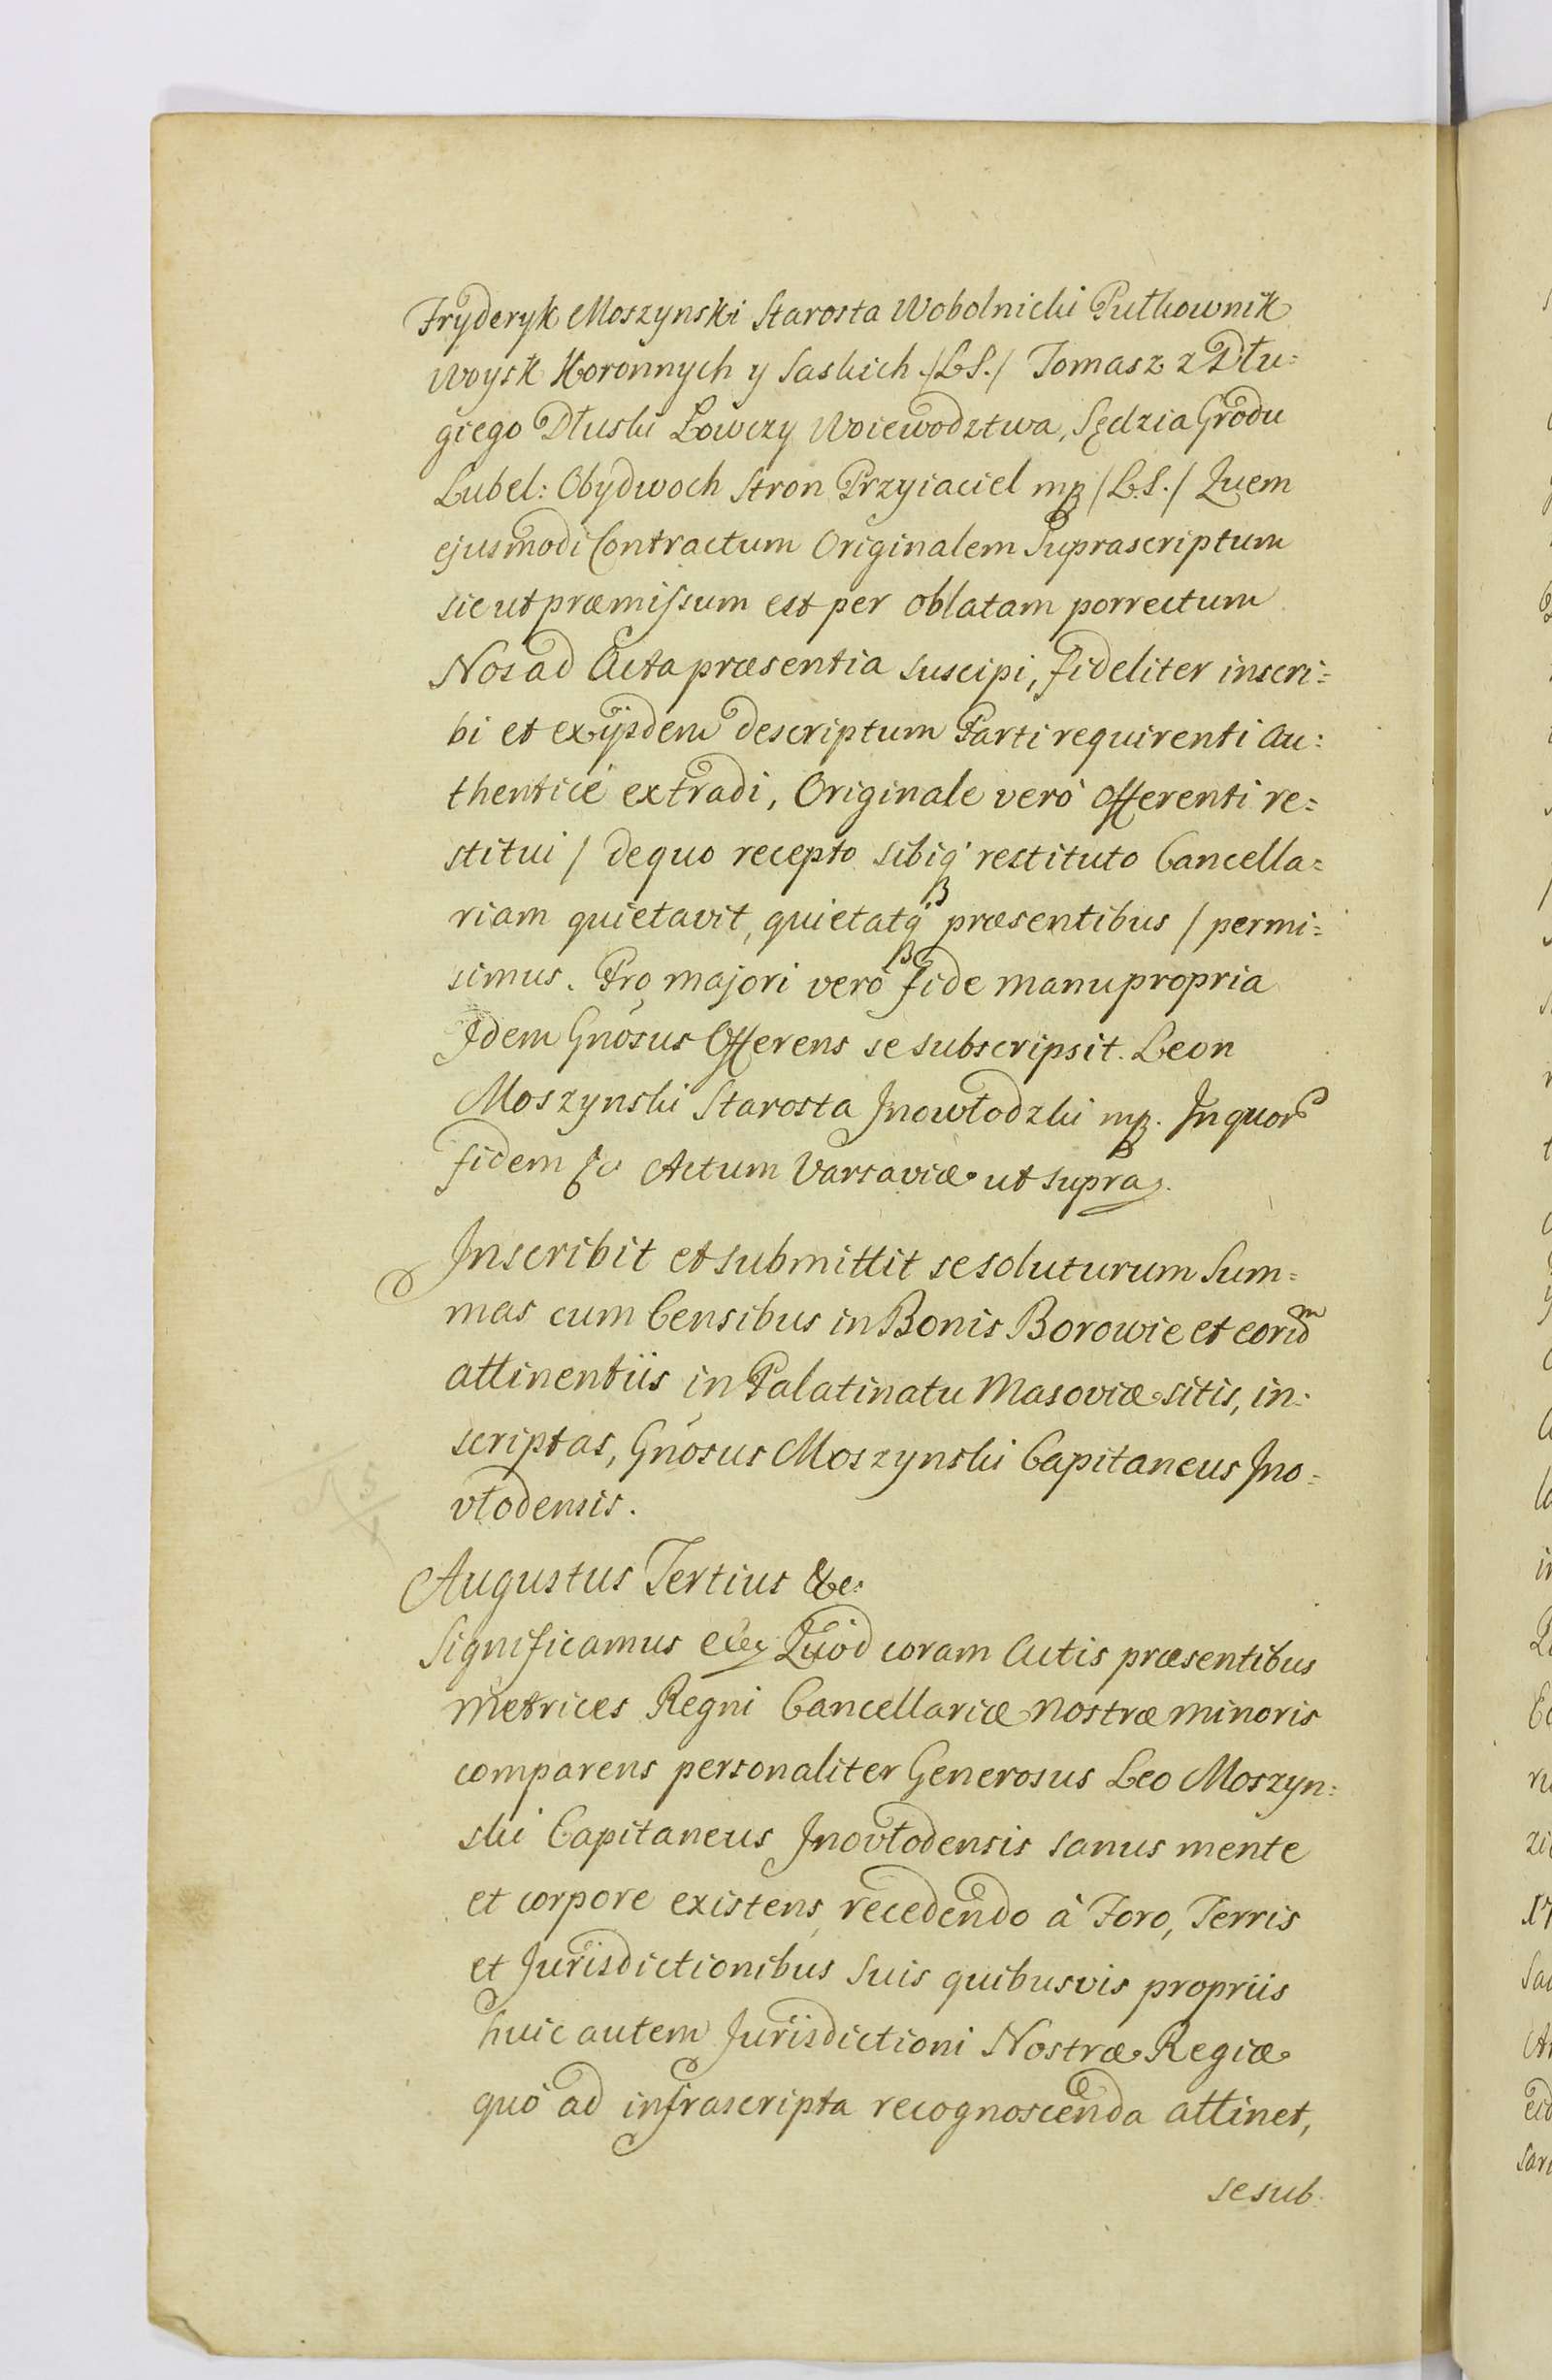 Fryderyk Moszynski Starosta Wobolnicki Pułkownik
Woysk Koronnych y Saskich /L.S./ Tomasz z Dłu:
giego Dłuski Łowczy Woiewodztwa, Sędzia Grodu
Lubel: Obydwoch Stron Przyiaciel mp /L.S./ Quem
ejusmodi Contractum Originalem Suprascriptum
sicut præmissum est per oblatam porrectum
Nos ad Acta præsentia suscipi, fideliter inscri:
bi et ex ijsdem descriptum Parti requirenti au:
thenticè extradi, Originale verò Offerenti re:
stitui / de quo recepto sibiq restituto Cancella:
riam quietavit, quietatq præsentibus / permi:
simus. Pro majori verò fide manu propria
Idem Gnosus Offerens se subscripsit. Leon
Moszynski Starosta Jnowłodzki mp. In quor
fidem &c Actum Varsaviæ ut supra.
Inscribit et submittit se soluturum Sum:
mas cum Censibus in Bonis Borowie et eorūd
attinentiis in Palatinatu Masoviæ sitis, in:
scriptas, Gnosus Moszynski Capitaneus Jno:
vłodensis.
Augustus Tertius &c:
Significamus &c Quòd coram Actis præsentibus
Metrices Regni Cancellariæ Nostræ Minoris
comparens personaliter Generosus Leo Moszyn:
ski Capitaneus Jnovłodensis sanus mente
et corpore existens, recedendo à Foro, Terris
et Jurisdictionibus Suis quibusvis propriis
huic autem Jurisdictioni Nostræ Regiæ
quò ad infrascripta recognoscenda attinet,
se sub.